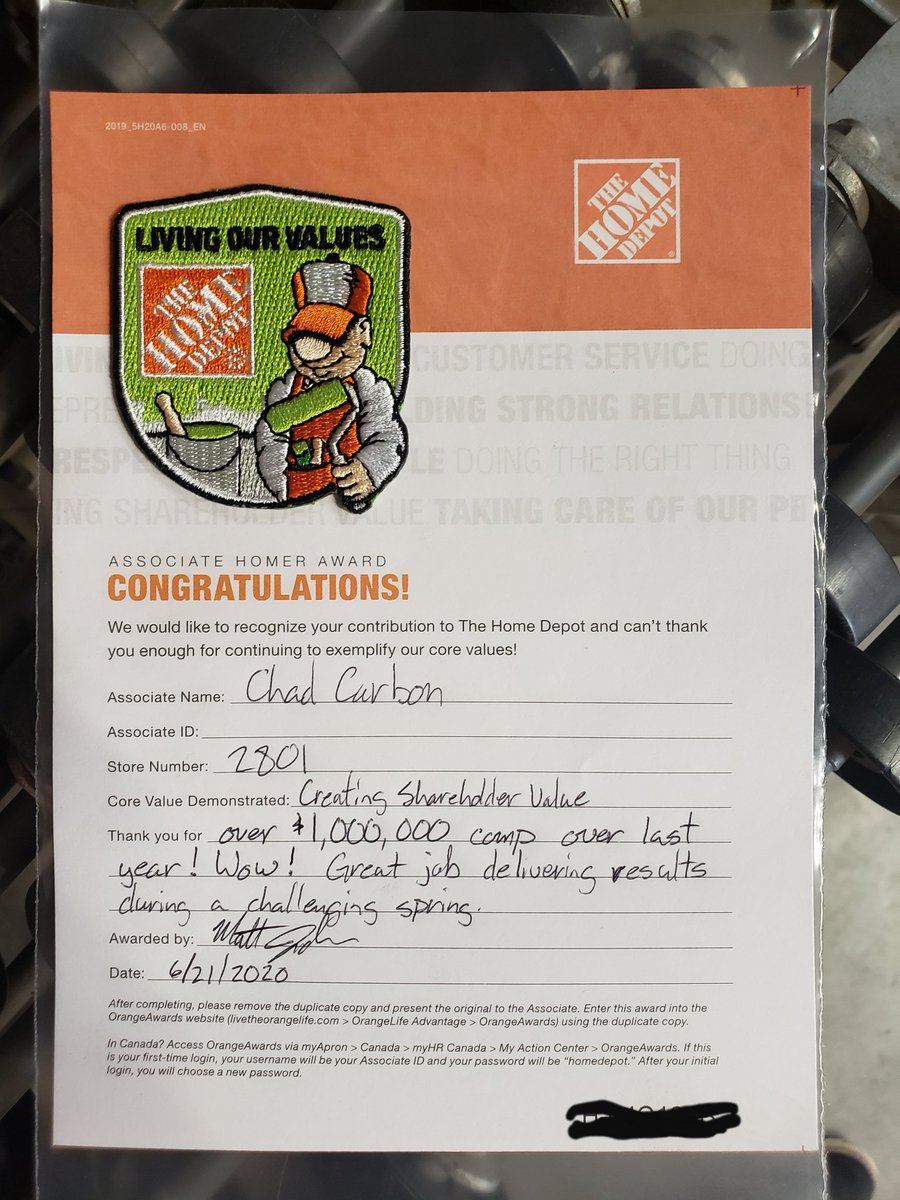 2019_5H20A6-008_EN
THE
HOME
DEPOT
LIVING OUR VALUES
THE
HOME
DEPOT
CUSTOMER SERVICE DOING
STRONG RELATIONS
DOING THE RIGHT THING
SHAREHOLDER VALUE TAKING CARE OF OUR
ASSOCIATE HOMER AWARD
CONGRATULATIONS!
We would like to recognize your contribution to The Home Depot and can't thank
you enough for continuing to exemplify our core values!
Associate Name: Chad Carbon
Associate ID:
Store Number: 2801
Core Value Demonstrated: Creating Shareholder Value
Thank you for over $1,000,000 comp over last
year! Wow! Great job delivering results
during a challenging spring.
Awarded by: Matt
Date: 6/21/2020
After completing, please remove the duplicate copy and present the original to the Associate. Enter this award into the
OrangeAwards website (livetheorangelife.com > OrangeLife Advantage > OrangeAwards) using the duplicate copy.
In Canada? Access OrangeAwards via myApron > Canada > myHR Canada > My Action Center > OrangeAwards. If this
is your first-time login, your username will be your Associate ID and your password will be "homedepot." After your initial
login, you will choose a new password.